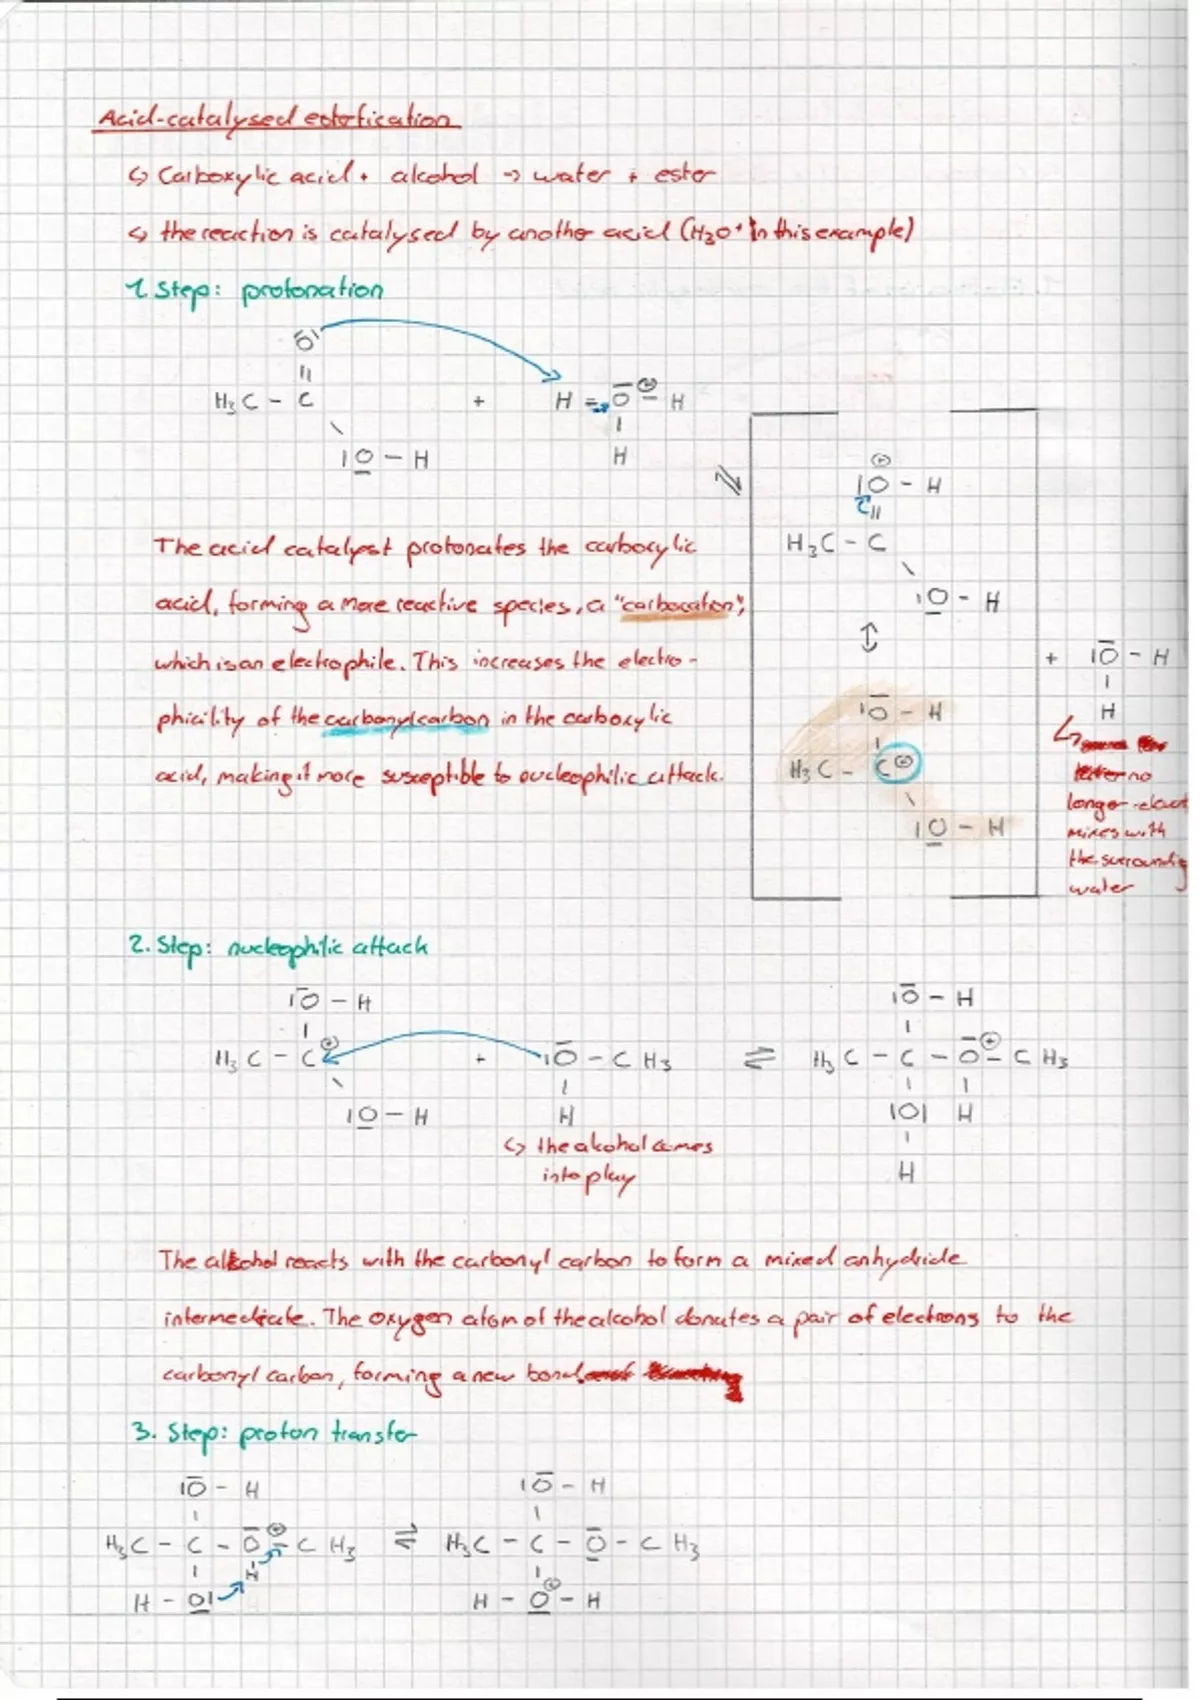 Acid-catalysed esterification
↳ Carboxylic acid + alcohol → water + ester
↳ the reaction is catalysed by another acid (H₃O⁺ in this example)
1. Step: protonation
H₃C - C
+
H - O - H
O - H
H
⇌
O - H
H₃C - C
O - H
↕
O - H
H₃C - C ⊕
O - H
+ O - H
H
The acid catalyst protonates the carboxylic
acid, forming a more reactive species, a "carbocation",
which is an electrophile. This increases the electro-
phicility of the carbonylcarbon in the carboxylic
acid, making it more susceptible to nucleophilic attack.
no
longer relevant
mixes with
the surrounding
water
2. Step: nucleophilic attack
O - H
H₃C - C ⊕ + O - CH₃ ⇌ H₃C - C - O⊕ - CH₃
O - H
H
↳ the alcohol comes
into play
O - H
O H
H
The alkohol reacts with the carbonyl carbon to form a mixed anhydride
intermediate. The oxygen atom of the alcohol donates a pair of electrons to the
carbonyl carbon, forming a new bond.
3. Step: proton transfer
O - H O - H
H₃C - C - O⊕ - CH₃ ⇌ H₃C - C - O - CH₃
H
H - O H - O⊕ - H